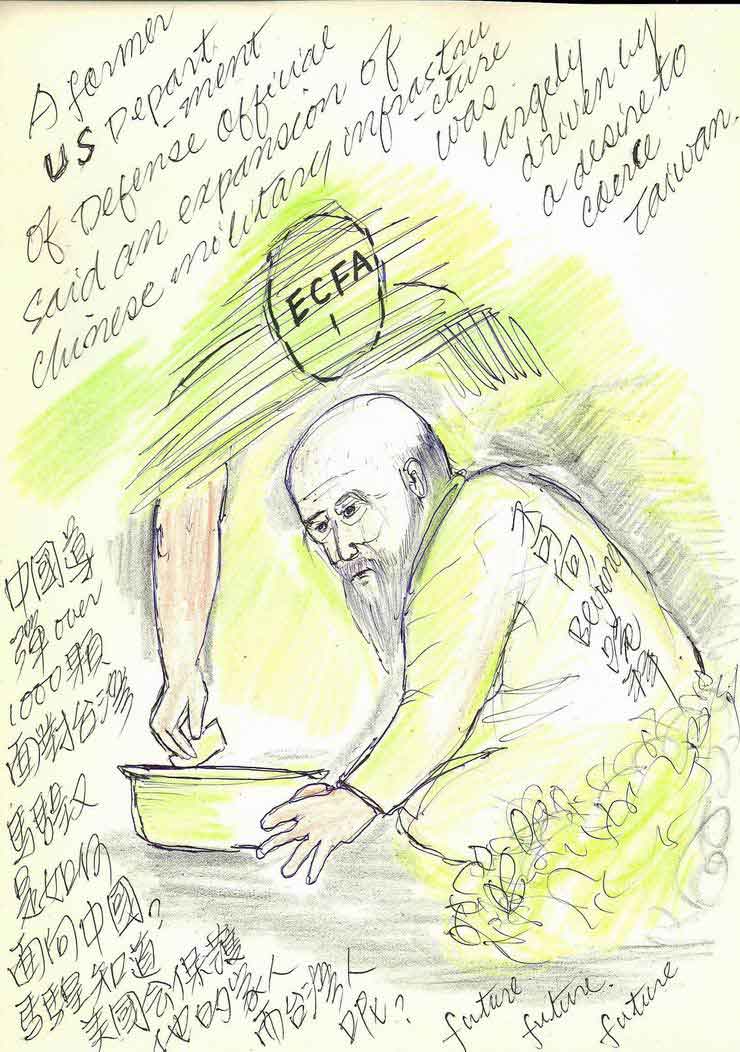 A former
US Depart
-ment
of Defense Official
said an expansion of
Chinese military infrastru
-cture
was
largely
driven by
a desire to
coerce
Taiwan.
ECFA
1
Beyond
中國導
彈over
1000顆
面對台灣
是如何
面向中國?
知道?
美國会保護
他的家人
而台灣人
future
future.
future